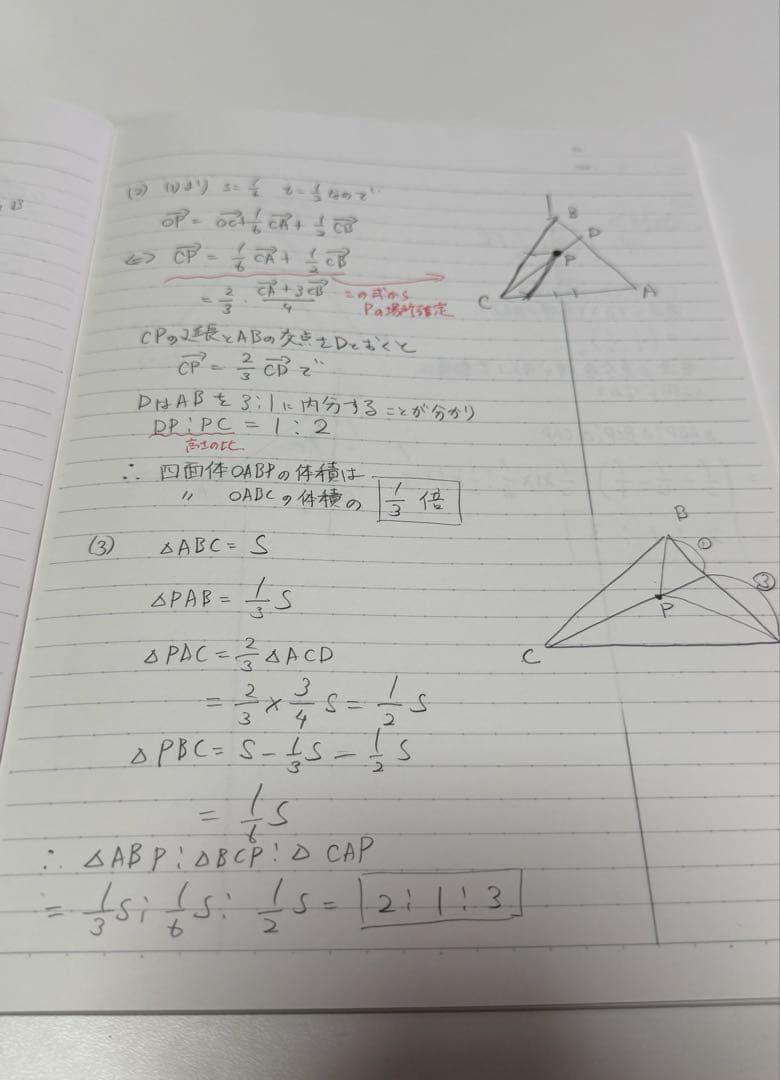 (2) (1)より s=1/2 t=1/3なので
OP→ = OC→+1/6 CA→+1/2 CB→
⇔ CP→ = 1/6 CA→ + 1/2 CB→
= 2/3 · (CA→+3CB→)/4
この式から
Pの場所確定
CPの延長とABの交点をDとおくと
CP→ = 2/3 CD→で
DはABを3:1に内分することが分かり
DP:PC = 1:2
高さの比
∴ 四面体OABPの体積は
〃 OABCの体積の 1/3 倍
(3) △ABC = S
△PAB = 1/3 S
△PAC = 2/3 △ACD
= 2/3 × 3/4 S = 1/2 S
△PBC = S - 1/3 S - 1/2 S
= 1/6 S
∴ △ABP:△BCP:△CAP
= 1/3 S: 1/6 S: 1/2 S = 2:1:3
B
D
P
C
A
B
①
③
P
C